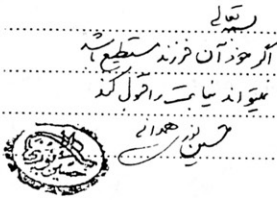 بسمه تعالی
اگر خود آن فرزند مستطیع باشد
نمیتواند نیابت را قبول کند
حسین نوری همدانی
حسین نوری